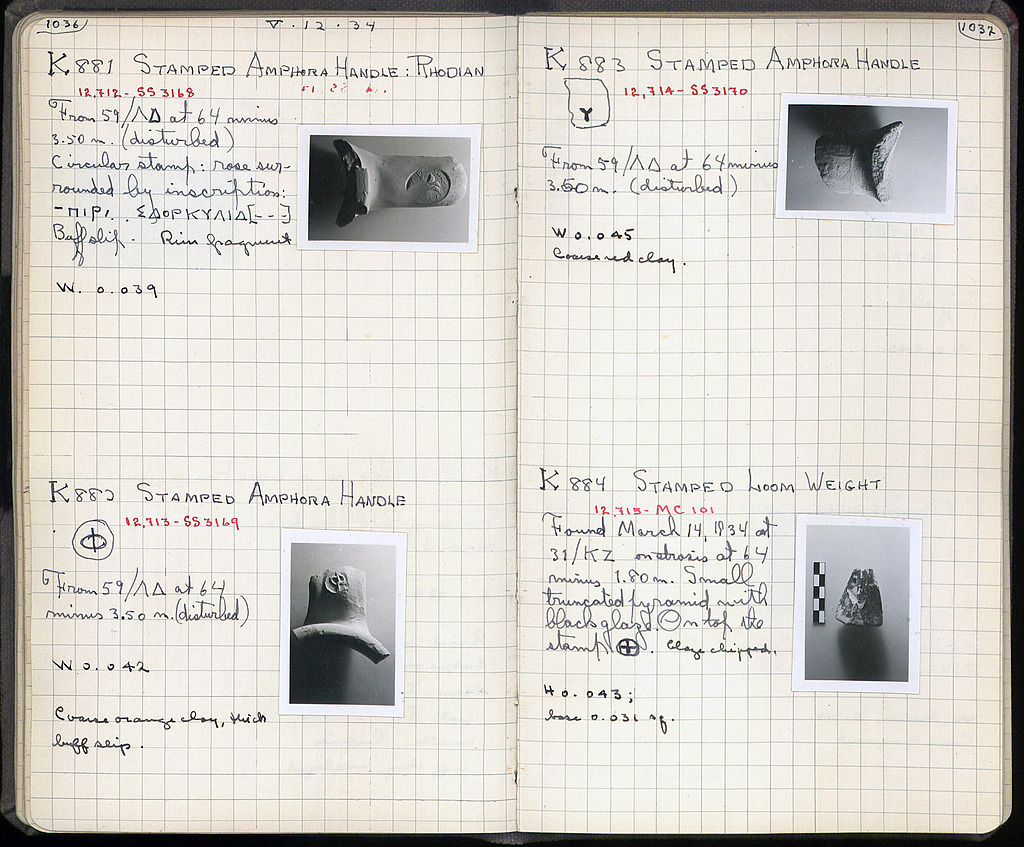 1036
V · 12 · 34
K 881 STAMPED AMPHORA HANDLE: RHODIAN
12,712 - SS 3168
From 59/ΛΔ at 64 minus
3.50 m. (disturbed)
Circular stamp: rose sur-
rounded by inscription:
Buff slip. Rim fragment
W. 0.039
K 882 STAMPED AMPHORA HANDLE
12,713 - SS 3169
From 59/ΛΔ at 64
minus 3.50 m. (disturbed)
W 0.042
Coarse orange clay, thick
buff slip.
1037
K 883 STAMPED AMPHORA HANDLE
12,714 - SS 3170
Y
From 59/ΛΔ at 64 minus
3.50 m. (disturbed)
W 0.045
Coarse red clay.
K 884 STAMPED LOOM WEIGHT
12,715 - MC 101
Found March 14, 1934 at
31/KZ at 64
minus 1.80 m. Small
truncated pyramid with
black glaze. On top the
stamp ⊕. Glaze chipped.
H 0.043;
base 0.031 sq.